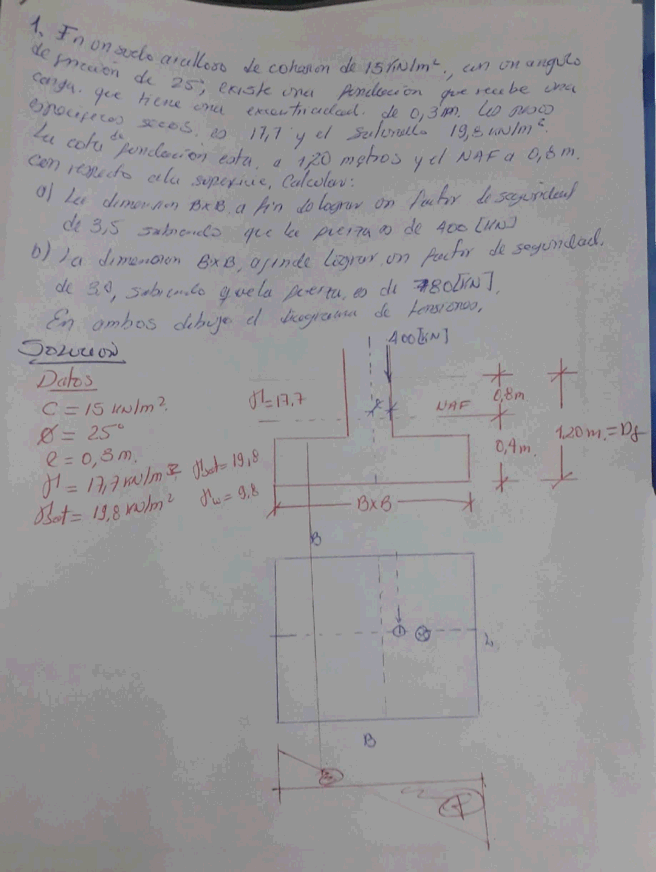 1. En un suelo arcilloso de cohesion de 15 kN/m², con un angulo
de fricción de 25°, existe una fundación que recibe una
carga que tiene una excentricidad de 0,3 m. Los pesos
especificos secos es 17,7 y el saturado 19,8 kN/m².
La cota de fundacion esta a 1,20 metros y el NAF a 0,8 m.
con respecto a la superficie, Calcular:
a) La dimension BxB a fin de lograr un factor de seguridad
de 3,5 sabiendo que la fuerza es de 400 [kN]
b) La dimension BxB, a fin de lograr un factor de seguridad.
de 3,0, sabiendo que la fuerza es de 780[kN].
En ambos dibuje el diagrama de tensiones.
SOLUCION
400[kN]
Datos
C = 15 kN/m².
Ø = 25°
e = 0,3 m.
γ = 17,7 kN/m
γsat = 19,8 kN/m²
γ = 17,7
γsat = 19,8
γw = 9,8
NAF
0,8m
0,4m.
1,20 m. = Df
BxB
B
L
B